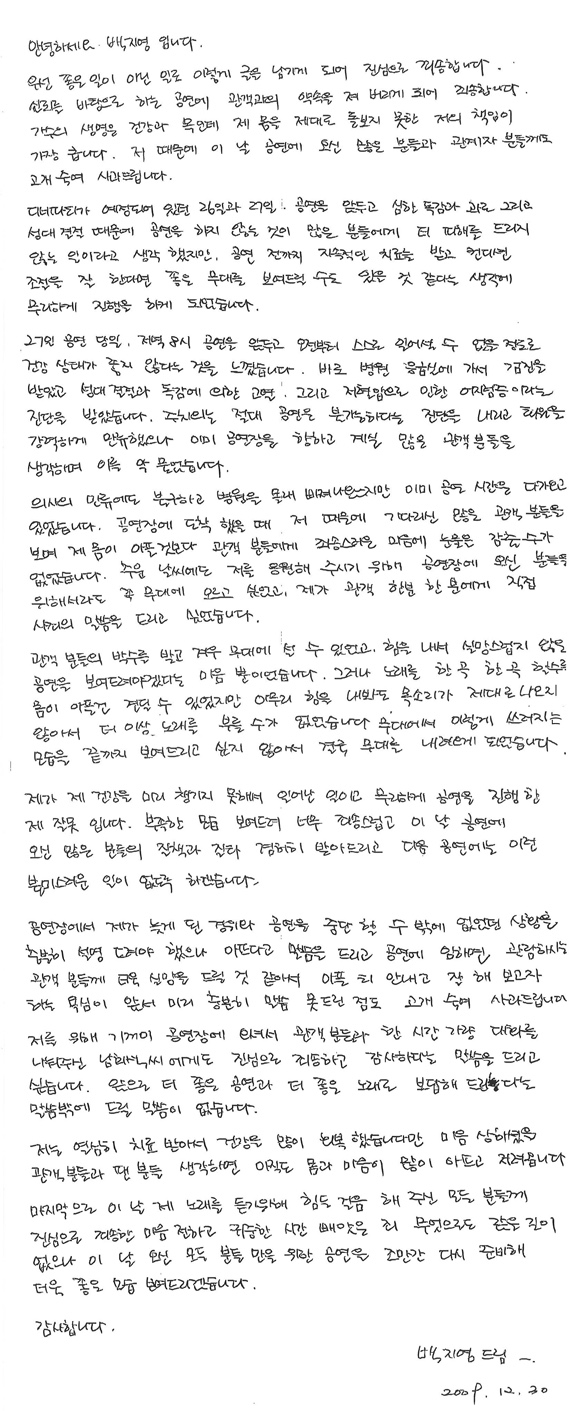 안녕하세요. 백지영 입니다.
우선 좋은 일이 아닌 일로 이렇게 글을 남기게 되어 진심으로 죄송합니다.
신뢰를 바탕으로 하는 공연에 관객과의 약속을 져 버리게 되어 죄송합니다.
가수의 생명은 건강과 목인데 제 몸을 제대로 돌보지 못한 저의 책임이
가장 큽니다. 저 때문에 이 날 공연에 오신 많은 분들과 관계자 분들께도
고개 숙여 사과드립니다.
디너파티가 예정되어 있던 26일과 27일. 공연을 앞두고 심한 독감과 과로 그리고
성대결절 때문에 공연을 하지 않는 것이 많은 분들에게 더 피해를 드리지
않는 일이라고 생각 했지만, 공연 전까지 지속적인 치료를 받고 컨디션
조절을 잘 한다면 좋은 무대를 보여드릴 수도 있을 것 같다는 생각에
무리하게 진행을 하게 되었습니다.
27일 공연 당일, 저녁 8시 공연을 앞두고 오전부터 스스로 일어설 수 없을 정도로
건강 상태가 좋지 않다는 것을 느꼈습니다. 바로 병원 응급실에 가서 검진을
받았고 성대결절과 독감에 의한 고열. 그리고 저혈압으로 인한 어지럼증이라는
진단을 받았습니다. 주치의는 절대 공연을 불가능하다는 진단을 내리고 퇴원을
강력하게 만류했으나 이미 공연장을 향하고 계실 많은 관객분들을
생각하며 이를 악 물었습니다.
의사의 만류에도 불구하고 병원을 몰래 빠져나왔지만 이미 공연 시간은 다가오고
있었습니다. 공연장에 도착 했을 때, 저 때문에 기다리신 많은 관객 분들을
보며 제 몸이 아픈것보다 관객 분들에게 죄송스러운 마음에 눈물을 감출 수가
없었습니다. 추운 날씨에도 저를 응원해 주시기 위해 공연장에 오신 분들을
위해서라도 꼭 무대에 오르고 싶었고, 제가 관객 한분 한분에게 직접
사죄의 말씀을 드리고 싶었습니다.
관객 분들의 박수를 받고 겨우 무대에 설 수 있었고, 힘을 내서 실망스럽지 않을
공연을 보여드려야겠다는 마음 뿐이었습니다. 그러나 노래를 한 곡 한 곡 할수록
몸이 아픈건 견딜 수 있었지만 아무리 힘을 내봐도 목소리가 제대로 나오지
않아서 더 이상 노래를 부를 수가 없었습니다 무대에서 이렇게 쓰러지는
모습을 끝까지 보여드리고 싶지 않아서 결국 무대를 내려오게 되었습니다.
제가 제 건강을 미리 챙기지 못해서 일어난 일이고 무리하게 공연을 진행 한
제 잘못 입니다. 부족한 모습 보여드려 너무 죄송스럽고 이 날 공연에
오신 많은 분들의 질책과 질타 겸허히 받아드리고 다음 공연에는 이런
불미스러운 일이 없도록 하겠습니다.
공연장에서 제가 늦게 된 경위와 공연을 중단 할 수 밖에 없었던 상황을
충분히 설명 드려야 했으나 아프다고 말씀을 드리고 공연에 임하면, 관람하시는
관객 분들께 더욱 실망을 드릴 것 같아서 아픈 티 안내고 잘 해 보고자
하는 욕심이 앞서 미리 충분히 말씀 못드린 점도 고개 숙여 사과드립니다
저를 위해 기꺼이 공연장에 와줘서 관객분들과 한 시간 가량 대화를
나눠주신 남희석씨에게도 진심으로 죄송하고 감사하다는 말씀을 드리고
싶습니다. 앞으로 더 좋은 공연과 더 좋은 노래로 보답해 드린다는
말씀밖에 드릴 말씀이 없습니다.
저는 열심히 치료 받아서 건강을 많이 회복 했습니다만 마음 상해있을
관객분들과 팬 분들 생각하면 아직도 몸과 마음이 많이 아프고 저려옵니다
마지막으로 이 날 제 노래를 듣기위해 힘든 걸음 해 주신 모든 분들께
진심으로 죄송한 마음 전하고 귀중한 시간 빼앗은 죄 무엇으로도 갚을 길이
없으나 이 날 오신 모든 분들 만을 위한 공연을 조만간 다시 준비해
더욱 좋은 모습 보여드리겠습니다.
감사합니다.
백지영 드림
2009. 12. 30